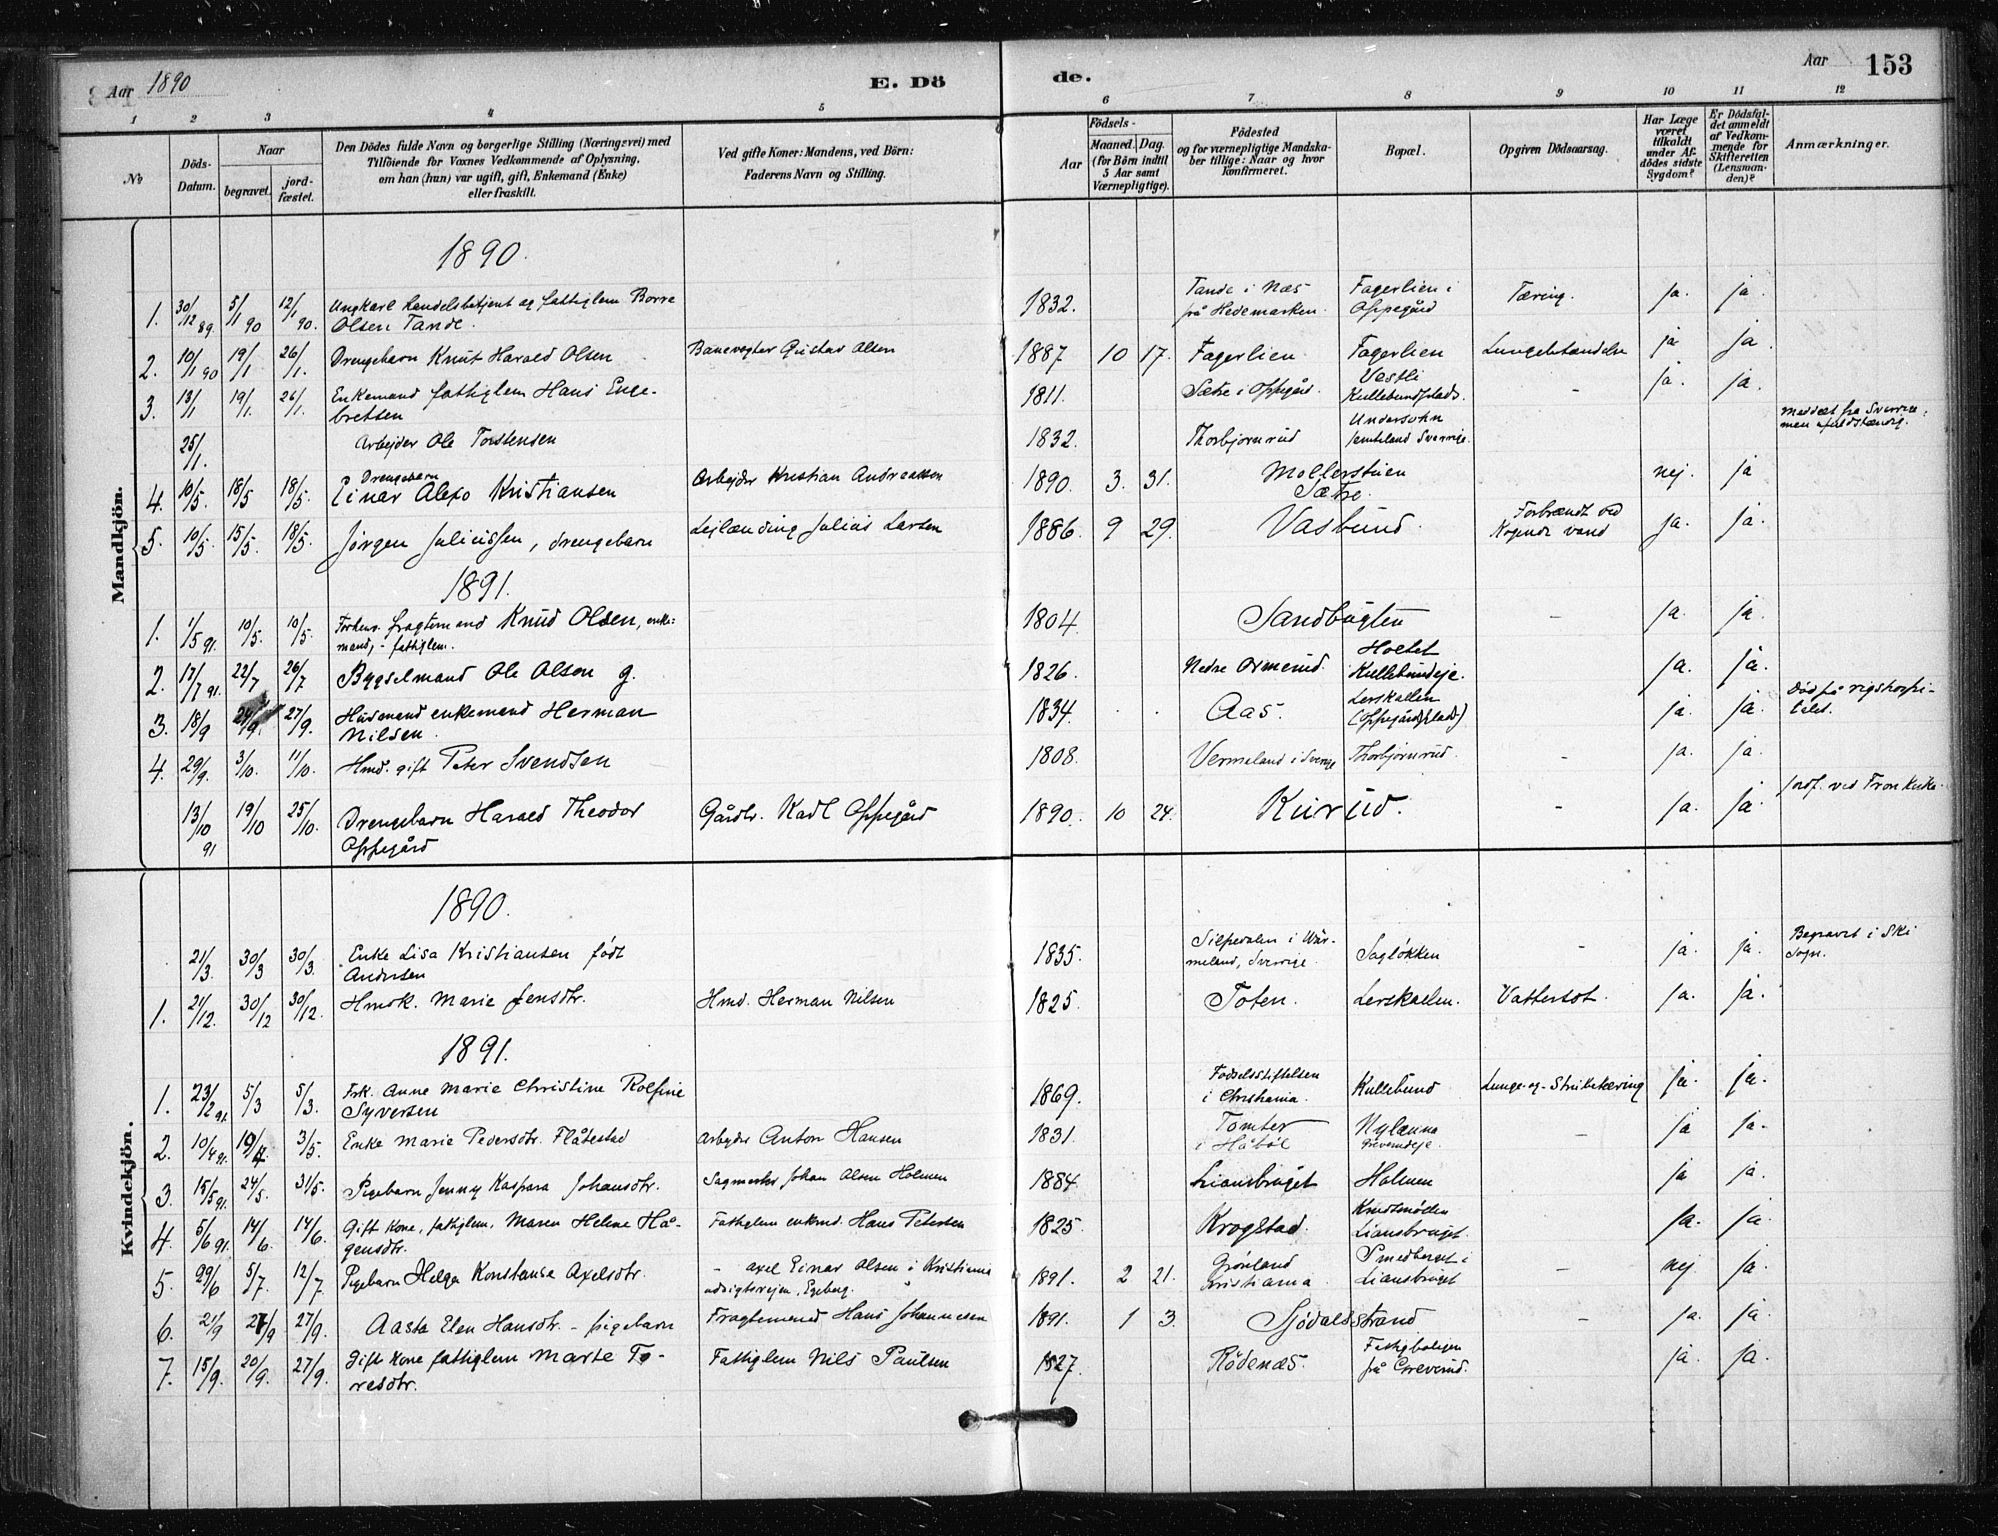 Aar 1890
E. Dö
de.
Aar
153
1 2 3 4 5 6 7 8 9 10 11 12
No
Döds-Datum.
Naar
begravet. jordfæstet.
Den Dödes fulde Navn og borgerlige Stilling (Næringsvei) med
Tilföiende for Voxnes Vedkommende af Oplysning,
om han (hun) var ugift, gift, Enkemand (Enke)
eller fraskilt.
Ved gifte Koner: Mandens, ved Börn:
Faderens Navn og Stilling.
Födsels-
Aar Maaned. Dag.
(for Börn indtil
5 Aar samt
Værnepligtige).
Födested
og for værnepligtige Mandska-
ber tillige: Naar og hvor
konfirmeret.
Bopæl.
Opgiven Dödsaarsag.
Har Læge
været
tilkaldt
under Af-
dödes sidste
Sygdom?
Er Dödsfal-
det anmeldt
af Vedkom-
mende for
Skifteretten
(Lensman-
den)?
Anmærkninger.
Mandkjön.
1890.
1. 30/12 89. 5/1 90 12/1 90. Ungkarl handelsbetjent og fattiglem Borre 1832. Tande i Næs Fagerlien i Tæring. ja. ja.
Olsen Tande. på Hedemarken. Oppegård
2. 10/1 90 19/1 26/1. Drengebarn Knut Harald Olsen Banevogter Gustav Olsen 1887 10 17. Fagerlien. Fagerlien Lungebetændelse ja ja.
3. 13/1 19/1. 26/1. Enkemand fattiglem Hans Enge- 1811. Sætre i Oppegård. Vestli - ja. ja.
bretsen Kullebundplads.
25/1. Arbejder Ole Torstensen 1832. Thorbjornrud Undersohn
Jemteland Sverrige. Meddelt fra Sverrige
men ufuldstændig.
4. 10/5. 18/5 18/5. Drengebarn
Einar Alexo Kristiansen Arbejder Kristian Andreassen 1890. 3. 31. Mollerstuen nej. ja
Sætre.
5. 10/5. 15/5. 18/5. Jørgen Juliussen, drengebarn Lejlænding Julius Larsen 1886. 9 29. Vasbund. Forbrændt ved ja. ja.
Kogende vand
1891.
1. 1/5 91. 10/5. 10/5. Forhenv. fragtemand Knud Olsen, enke- 1804. Sandbugten - ja. ja.
mand, - fattiglem.
2. 17/7 91. 22/7 26/7 Bygselmand Ole Olson g. 1826. Nedre Ormerud. Holtet ja. ja.
Kullebundeje.
3. 18/9 24/9. 27/9. Husmand enkemand Herman 1834. Aas. Lerskallen ja. ja. Død på rigshospi-
Nilsen. (Oppegårdplads) talet.
4. 29/9. 3/10. 11/10. Hmd. gift Peter Svendsen 1808. Vermeland i Sverige Thorbjornrud. ja. ja.
13/10 91 19/10 25/10. Drengebarn Harald Theodor Gårdbr. Karl Oppegård 1890. 10 24. Kurud. - ja. ja. jordf. ved Fron kirke.
Oppegård
Kvindekjön.
1890.
21/3. 30/3 30/3. Enke Lisa Kristiansen født 1835. Silpedalen i Wär- Sagløkken - ja. ja. Begravet i Ski
Andersen meland, Sverrige. Sogn.
1. 21/12. 30/12 30/12. Hmdk. Marie Jensdtr. Hmd. Herman Nilsen 1825. Toten. Lerskallen. Vattersot. ja. ja.
1891.
1. 23/2 91. 5/3 5/3. Frk. Anne Marie Christine Rolfine 1869. Fødselsstiftelsen Kullebund Lunge- og Strubetæring ja. ja.
Syversen i Christiania.
2. 10/4 91. 19/4. 3/5. Enke Marie Pedersdtr. Flåtestad Arbejder Anton Hansen 1831. Tomter Nylænna - ja ja.
i Håbøl Greverudeje.
3. 15/5 91. 24/5. 31/5. Pigebarn Jenny Kaspara Johansdtr. Sagmester Johan Olsen Holmen 1884. Liansbruget Holmen ja ja.
4. 5/6 91. 14/6 14/6. Gift Kone, fattiglem, Maren Helene Hå- Fattiglem enkmd. Hans Petersen 1825. Krogstad. Knudsmøllen ja. ja.
gensdtr. Liansbruget.
5. 29/6 5/7. 12/7. Pigebarn Helga Konstanse Axelsdtr. - Axel Einar Olsen i Kristiania 1891. 2 21. Grønland Smedberget i - nej ja.
udsigtsvejen, Egeberg. Kristiania. Liansbruget
6. 21/9 27/9 27/9. Aasta Elen Hansdtr. - pigebarn Fragtemand Hans Johannesen 1891. 1 3. Sjødalsstrand - ja. ja.
7. 15/9. 20/9. 27/9. Gift Kone fattiglem Marte To- Fattiglem Nils Paulsen 1827. Rödenæs. Fattigboligen ja. ja.
resdtr. på Greverud.